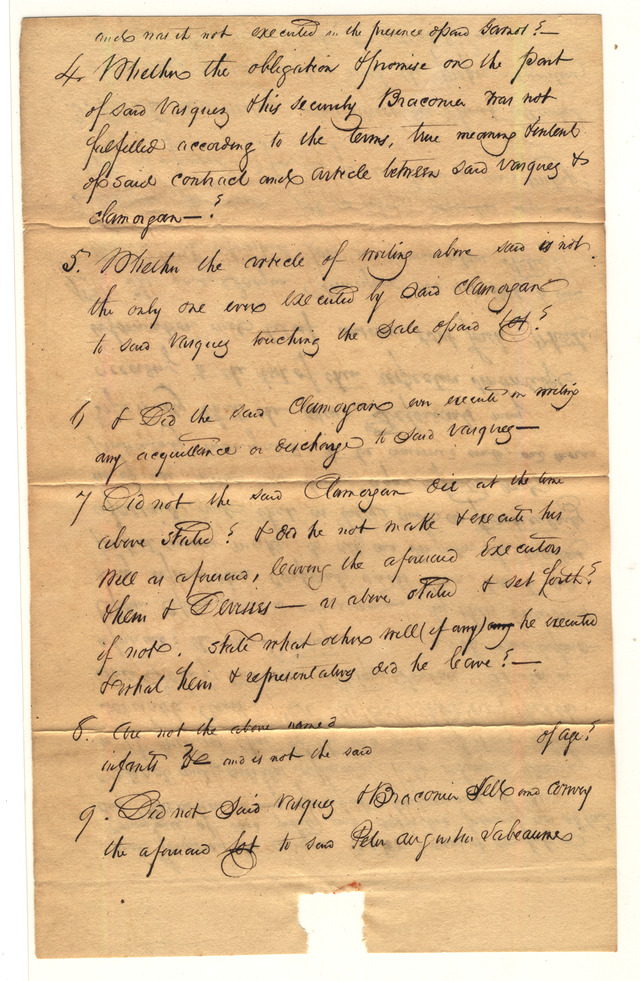 and was it not executed in the presence of said Garnot?—
4. Whether the obligation & promise on the part
of said Vasquez & his security Braconier was not
fulfilled according to the terms, true meaning & intent
of said contract and article between said Vasquez &
Clamorgan—?
5. Whether the article of writing above said is not
the only one ever executed by said Clamorgan
to said Vasquez touching the Sale of said lot?
6 & Did the said Clamorgan ever execute in writing
any acquittance or discharge to said Vasquez—
7 Did not the said Clamorgan die at the time
above stated? & did he not make & execute his
will as aforesaid, leaving the aforesaid Executors
heirs & Devisees— as above stated & set forth?
if not. state what other will (if any) any he executed
& what heirs & representatives did he leave?—
8. Are not the above named
infants &c and is not the said of age?
9. Did not Said Vasquez & Braconier Sell and convey
the aforesaid lot to said Peter Augustus Labeaume